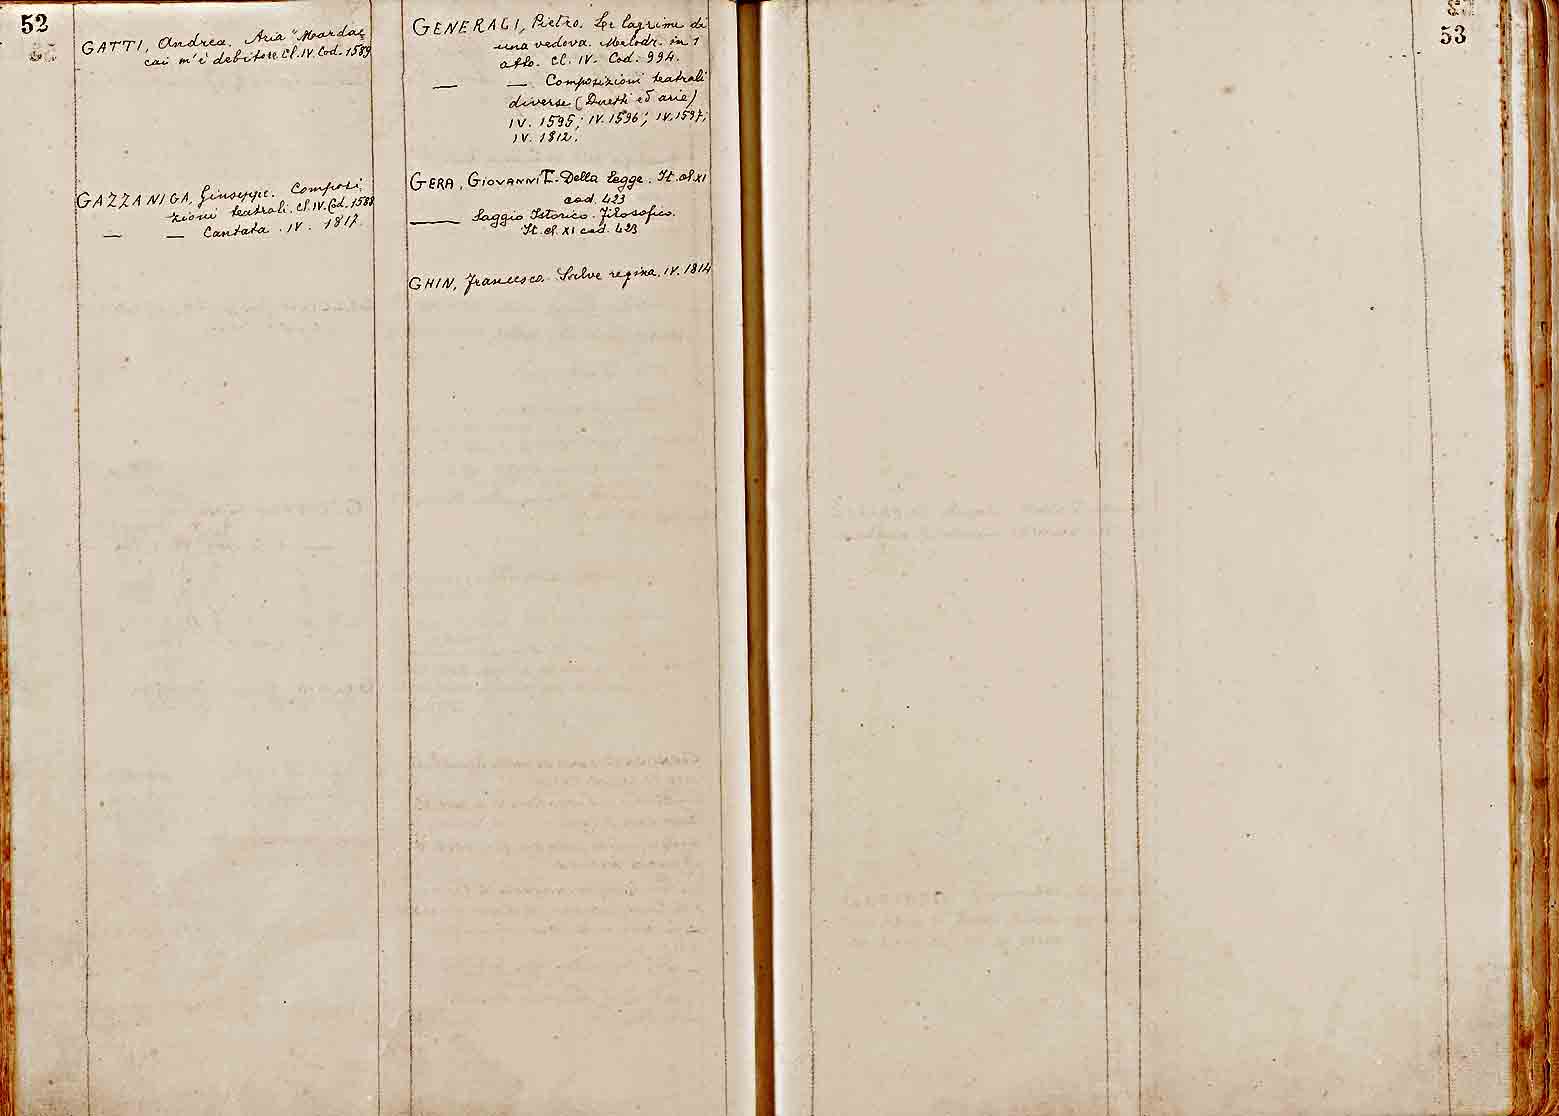 52
GATTI, Andrea. Aria "Mardac
cai m'è debitore Cl. IV. Cod. 1589
GAZZANIGA, Giuseppe. Composi,
zioni teatrali. Cl. IV. Cod. 1588
— — Cantata. IV. 1817.
GENERALI, Pietro. Le lagrime di
una vedova. Melodr. in 1
atto. Cl. IV. Cod. 994.
— — Composizioni teatrali
diverse (Duetti ed arie)
IV. 1595; IV. 1596; IV. 1597;
IV. 1812.
GERA, GIOVANNI T. Della Legge. It. cl. XI
cod. 423
— Saggio Istorico-Filosofico.
It. cl. XI cod. 423
GHIN, Francesco. Salve regina. IV. 1814
53